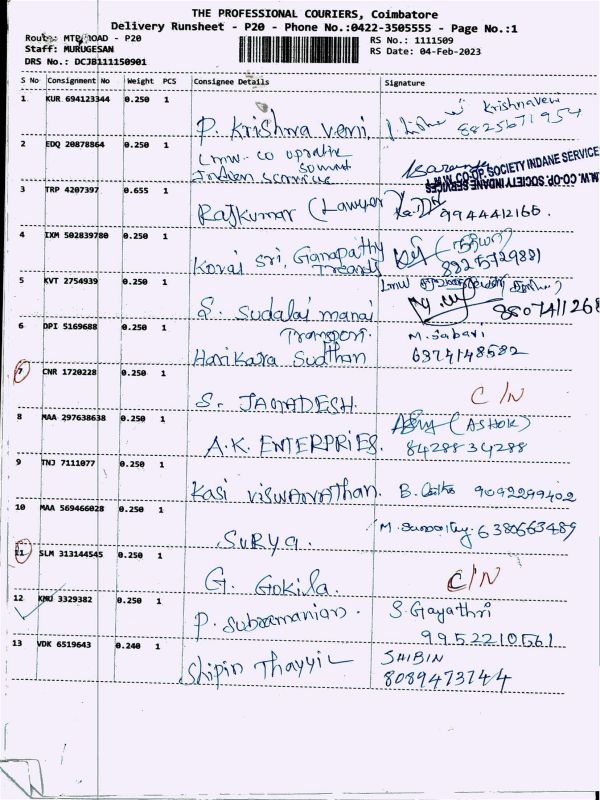 THE PROFESSIONAL COURIERS, Coimbatore
Delivery Runsheet - P20 - Phone No.:0422-3505555 - Page No.:1
Route: MTP ROAD - P20
RS No.: 1111509
Staff: MURUGESAN
RS Date: 04-Feb-2023
DRS No.: DCJB111150901
S No Consignment No Weight PCS Consignee Details Signature
1 KUR 694123344 0.250 1 P. Krishna veni Krishnaveni
8825671954
2 EDQ 20878864 0.250 1 Lmw-co oprative
W.CO-OP. SOCIETY INDANE SERVICE
M.W.CO-OP. SOCIETY INDANE SERVICES
Indien service
3 TRP 4207397 0.655 1 Rajkumar (Lawyer) 9944412160
4 IXM 502839780 0.250 1 Kovai Sri. Ganapathy
Treads 8825729881
5 KVT 2754939 0.250 1 Lmw
S. Sudalai manai
8807411268
Transport.
6 DPI 5169688 0.250 1 Harikara Sudhan M. Sabari
6374148582
7 CNR 1720228 0.250 1 S. JAGADESH. C/N
8 MAA 297638638 0.250 1 A.K. ENTERPRIES. (ASHOK)
8428834288
9 TNJ 7111077 0.250 1 Kasi VISWANATHAN. B. 9092299402
10 MAA 569466028 0.250 1 SURYA. M. 6380663489
11 SLM 313144545 0.250 1 G. Gokila. C/N
12 KMU 3329382 0.250 1 P. Subramanian. S. Gayathri
9952210561
13 VDK 6519643 0.240 1 Shipin Thayyil SHIBIN
8089473744